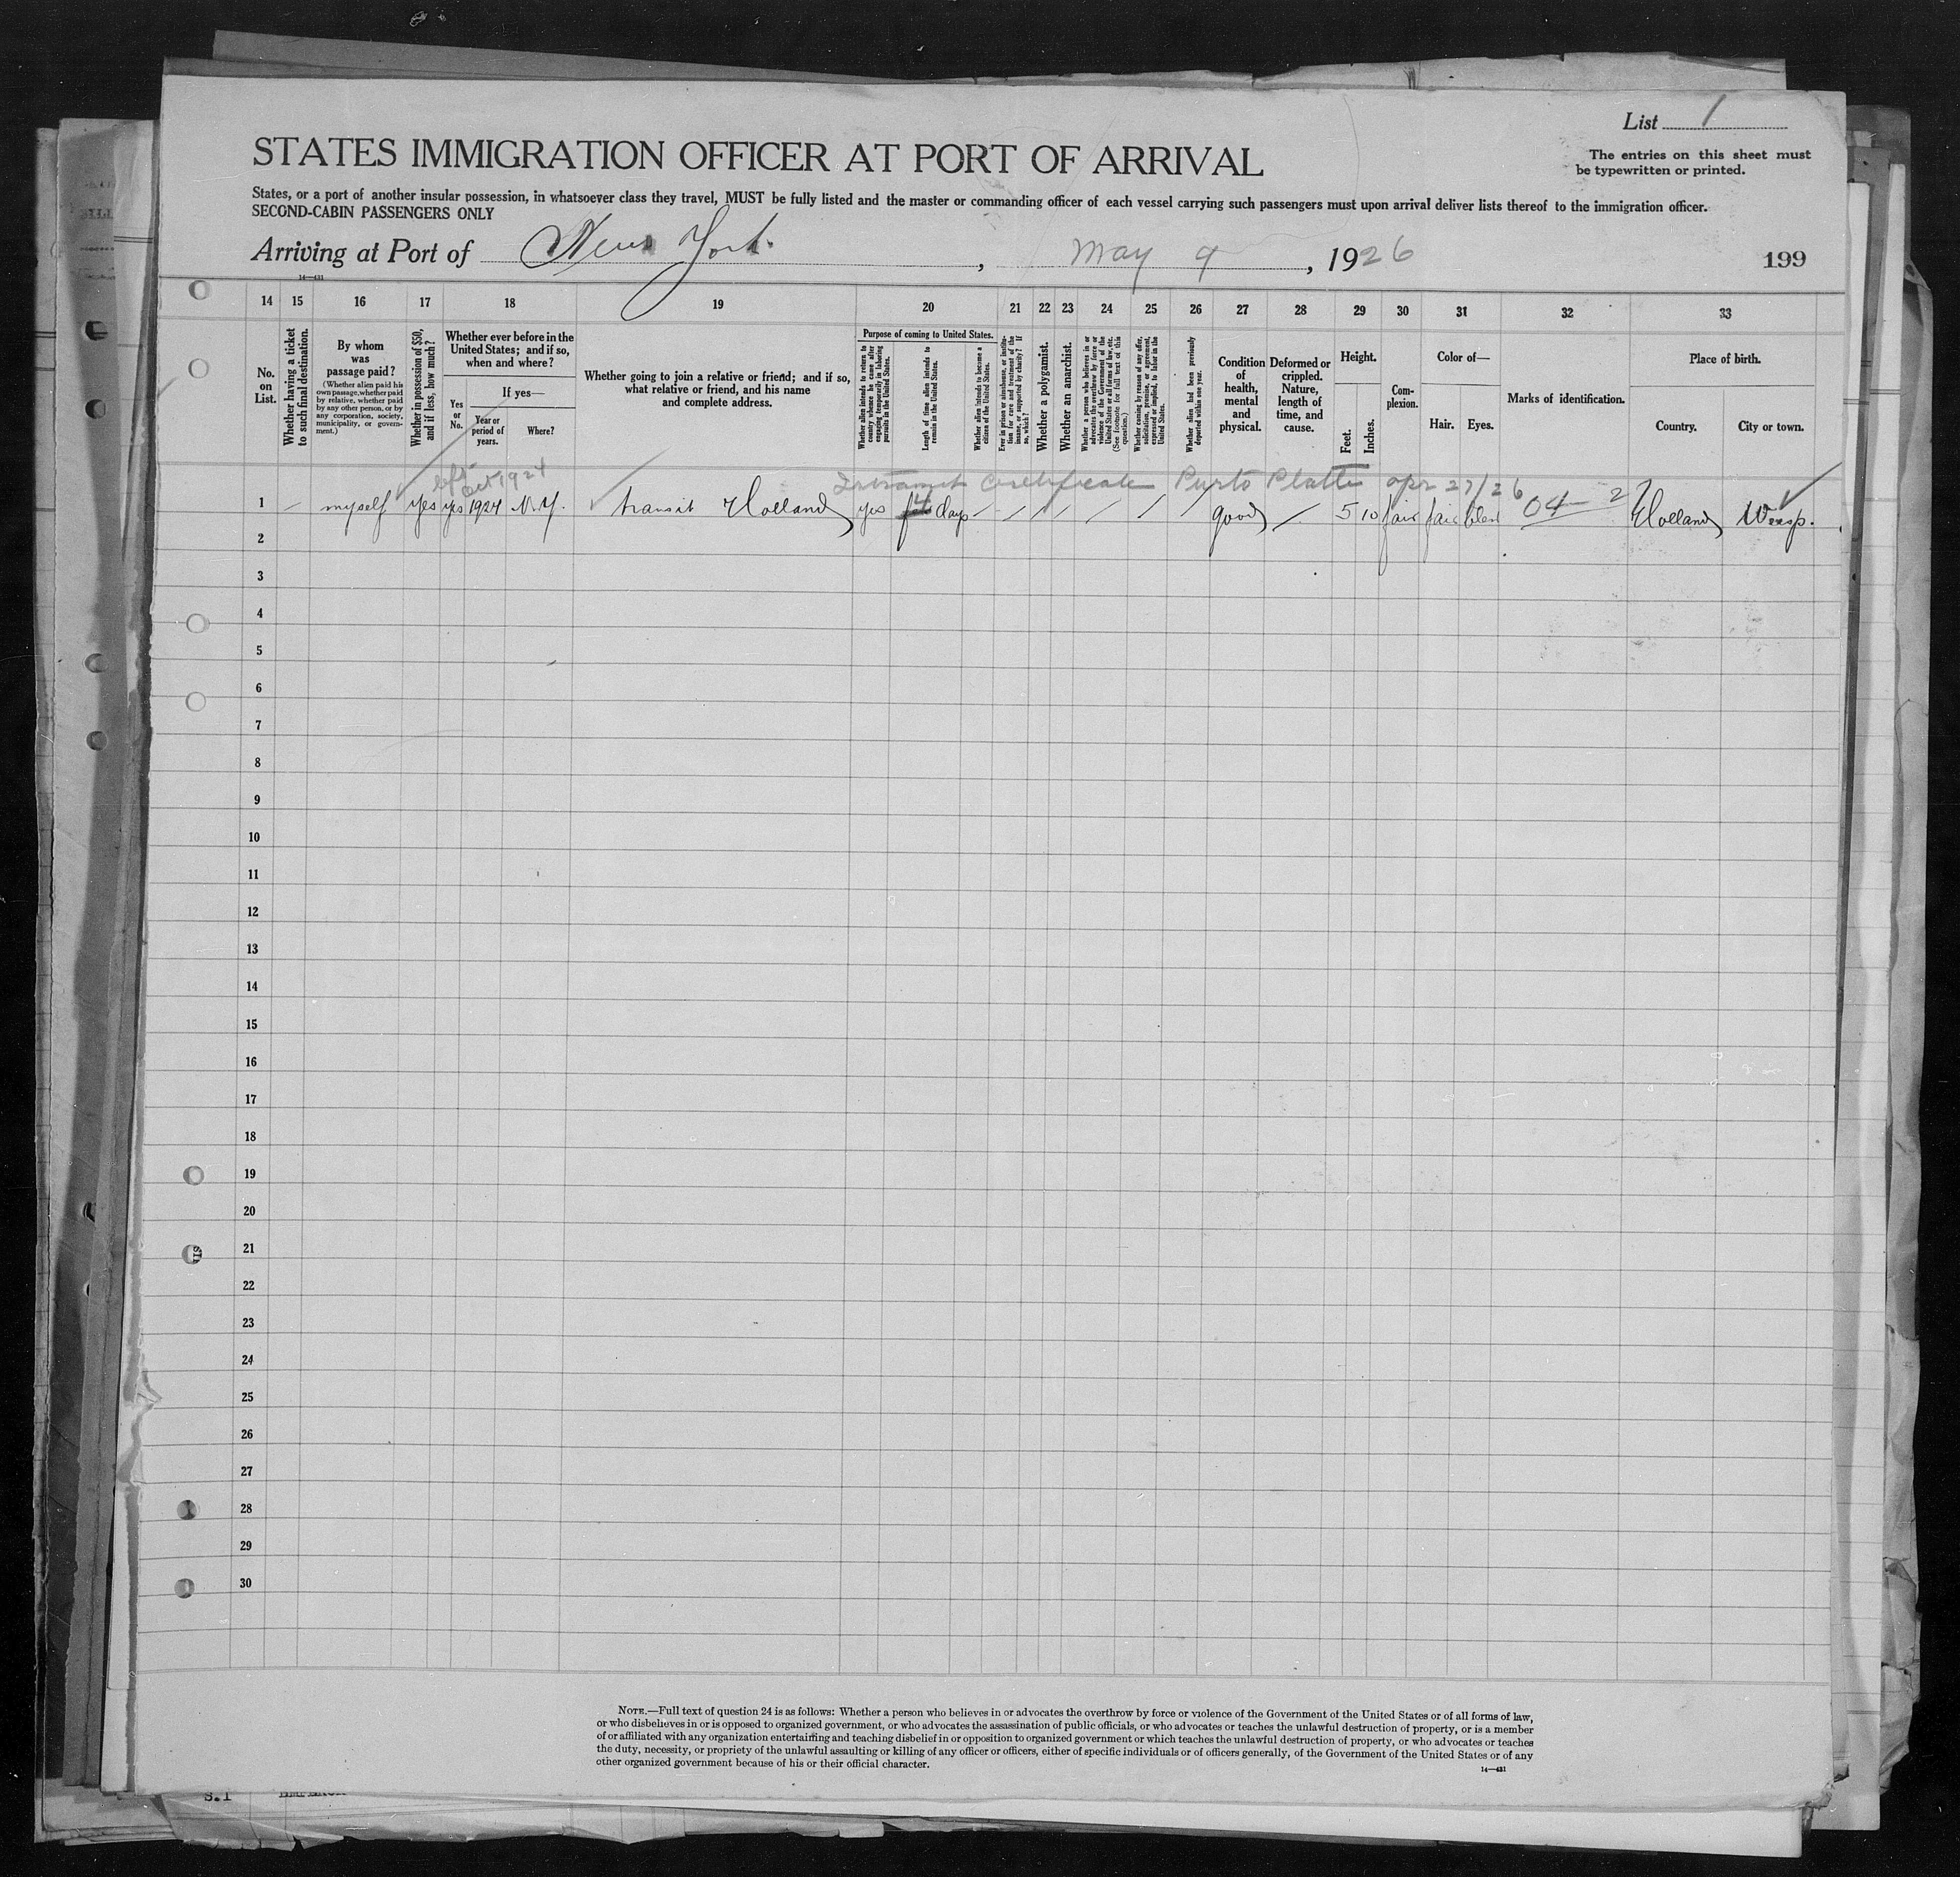 List 1
STATES IMMIGRATION OFFICER AT PORT OF ARRIVAL
The entries on this sheet must
be typewritten or printed.
States, or a port of another insular possession, in whatsoever class they travel, MUST be fully listed and the master or commanding officer of each vessel carrying such passengers must upon arrival deliver lists thereof to the immigration officer.
SECOND-CABIN PASSENGERS ONLY
Arriving at Port of New York, May 9, 1926
199
14—431
14 15 16 17 18 19 20 21 22 23 24 25 26 27 28 29 30 31 32 33
No. on List.
Whether having a ticket to such final destination.
By whom was passage paid?
(Whether alien paid his own passage, whether paid by relative, whether paid by any other person, or by any corporation, society, municipality, or government.)
Whether in possession of $50, and if less, how much?
Whether ever before in the United States; and if so, when and where?
Yes or No.
If yes—
Year or period of years.
Where?
Whether going to join a relative or friend; and if so, what relative or friend, and his name and complete address.
Purpose of coming to United States.
Whether alien intends to return to country whence he came after engaging temporarily in laboring pursuits in the United States.
Length of time alien intends to remain in the United States.
Whether alien intends to become a citizen of the United States.
Ever in prison or almshouse, or institution for care and treatment of the insane, or supported by charity? If so, which?
Whether a polygamist.
Whether an anarchist.
Whether a person who believes in or advocates the overthrow by force or violence of the Government of the United States or all forms of law, etc. (See footnote for full text of this question.)
Whether coming by reason of any offer, solicitation, promise, or agreement, expressed or implied, to labor in the United States.
Whether alien had been previously deported within one year.
Condition of health, mental and physical.
Deformed or crippled. Nature, length of time, and cause.
Height.
Feet.
Inches.
Complexion.
Color of—
Hair.
Eyes.
Marks of identification.
Place of birth.
Country.
City or town.
left Oct 1924
Intransit Certificate Purto Platte apr 27/26
1 — myself yes yes 1924 N.Y. transit Holland yes days good 5 10 fair fair 04 Holland Weesp.
2
3
4
5
6
7
8
9
10
11
12
13
14
15
16
17
18
19
20
21
22
23
24
25
26
27
28
29
30
NOTE.—Full text of question 24 is as follows: Whether a person who believes in or advocates the overthrow by force or violence of the Government of the United States or of all forms of law,
or who disbelieves in or is opposed to organized government, or who advocates the assassination of public officials, or who advocates or teaches the unlawful destruction of property, or is a member
of or affiliated with any organization entertaining and teaching disbelief in or opposition to organized government or which teaches the unlawful destruction of property, or who advocates or teaches
the duty, necessity, or propriety of the unlawful assaulting or killing of any officer or officers, either of specific individuals or of officers generally, of the Government of the United States or of any
other organized government because of his or their official character.
14—431
S.1